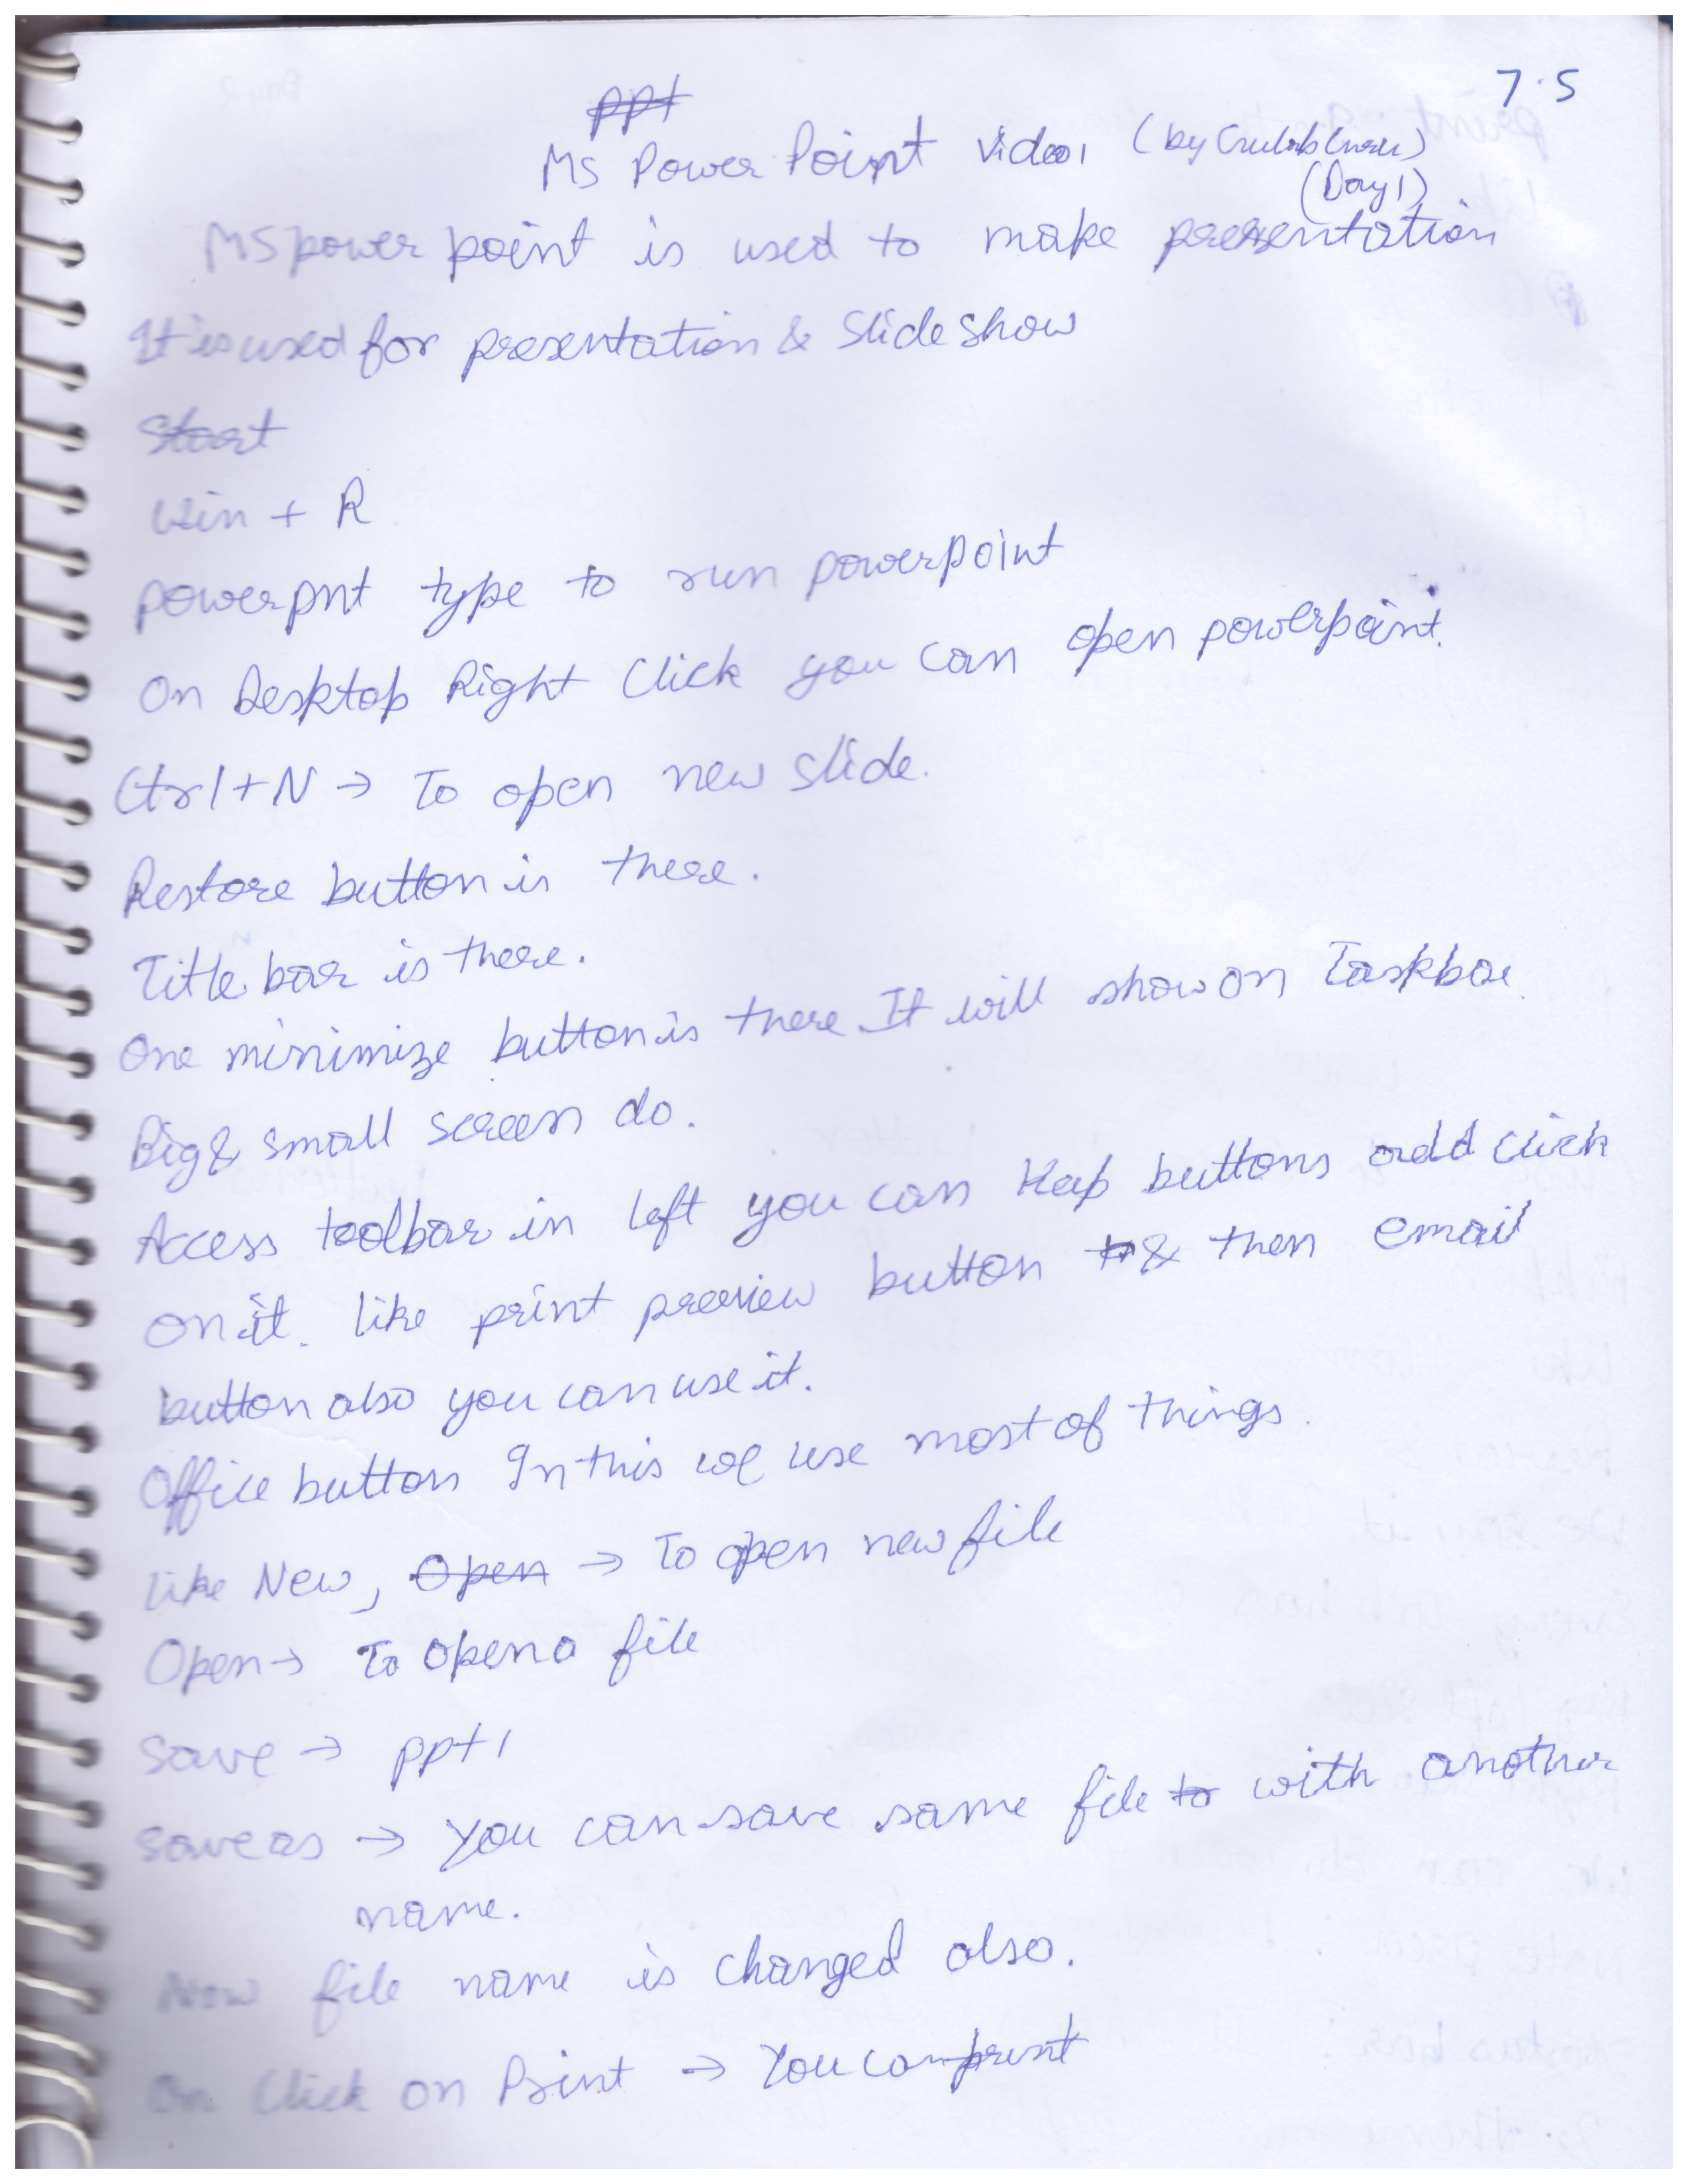 7.5
ppt
MS Power Point Video 1 (by
(Day 1)
MS power point is used to make presentation
It is used for presentation & Slide show
Start
Win + R
powerpnt type to run powerpoint
On Desktop Right Click you can open powerpoint.
Ctrl+N → To open new slide.
Restore button is there.
Title bar is there.
One minimize button is there. It will show on Taskbar.
Big & small screen do.
Access toolbar in left you can Keep buttons add click
on it. like print preview button & then email
button also you can use it.
Office button In this we use most of things.
like New, Open → To open new file
Open → To open a file
Save → ppt 1
Save as → You can save same file to with another
name.
Now file name is changed also.
On Click on Print → You can print